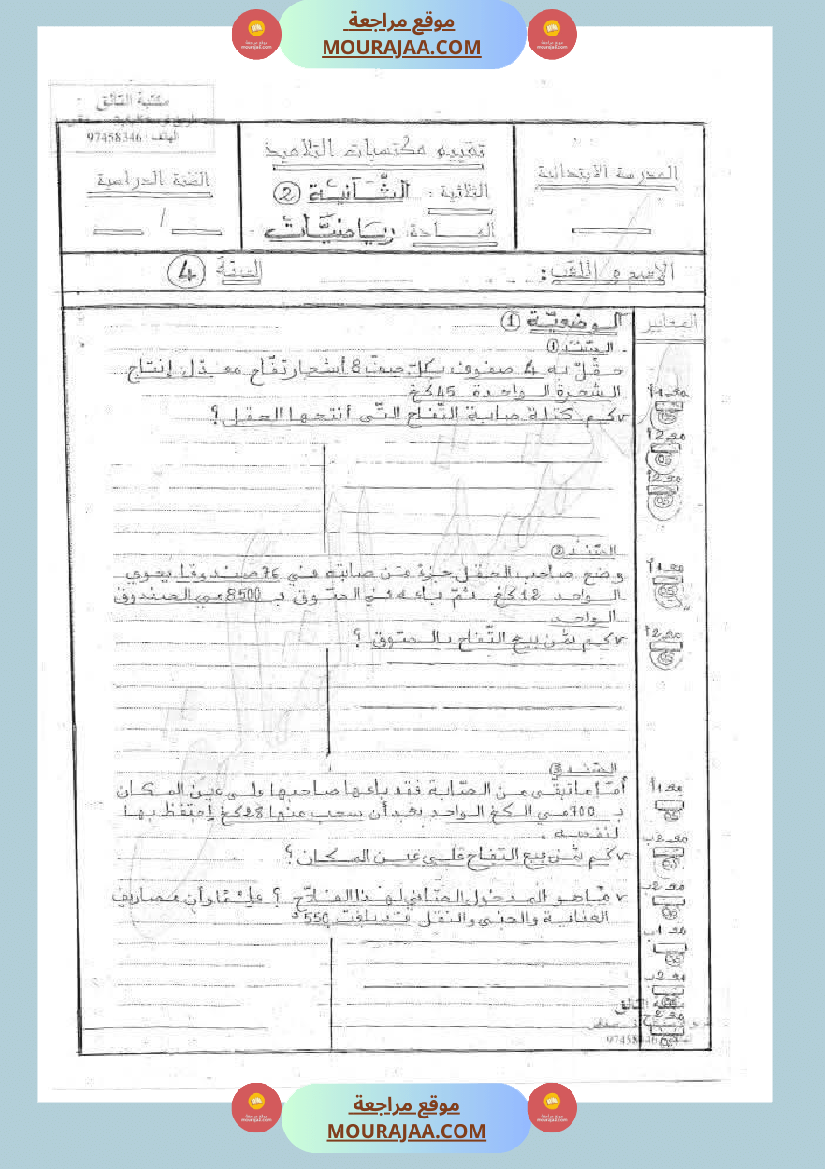 موقع مراجعة
MOURAJAA.COM
مكتبة التائق
الهاتف: 97458346
المدرسة الابتدائية
تقييم مكتسبات التلاميذ
الثلاثية: الثّانية ②
المادة: رياضيّات
السّنة الدراسية
/
الاسم و اللقب:
السنة ④
المعايير
الوضعيّة ①
السّند ①
حقل به 4 صفوف بكل صفّ 8 أشجار تفّاح معدّل إنتاج
الشجرة الواحدة 45 كغ
كم كتلة صابة التّفاح الّتي أنتجها الحقل ؟
السّند ②
وضع صاحب الحقل جزءا من صابته في 76 صندوقا يحوي
الواحد 18 كغ ثمّ باعه في السّوق بـ 8500 مي الصندوق
الواحد
كم ثمن بيع التّفاح بالسّوق ؟
السّند ③
أمّا ما تبقّى من الصّابة فقد باعها صاحبها على عين المكان
بـ 700 مي الكغ الواحد بعد أن سحب منها 28 كغ احتفظ بها
لنفسه.
كم ثمن بيع التفاح على عين المكان ؟
ما هو المدخول الصّافي لهذا الفلاّح ؟ علما وأن مصاريف
العناية والجني والنقل قد بلغت 550 د
موقع مراجعة
MOURAJAA.COM